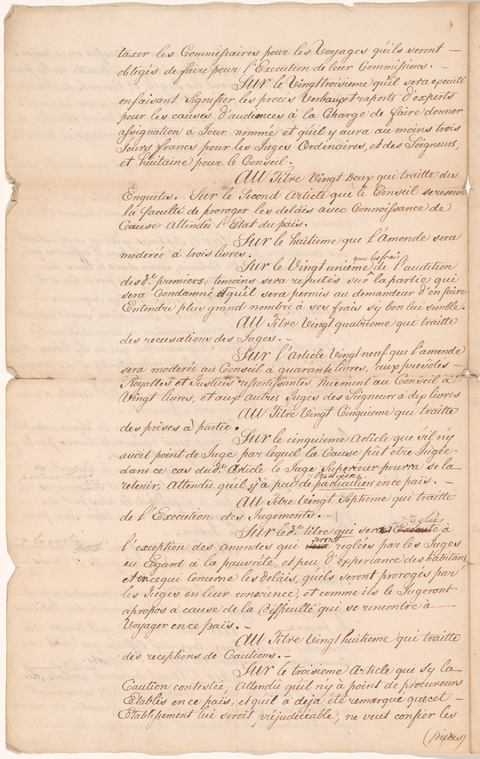 taxer les Commissaires pour les Voyages quils seront –
obligés de faire pour l'Execution de leur Commissions. –
Sur le Vingttroisieme quil sera
enfaisant Signifier les procés Verbaux et raports d'experts
pour les causes d'audiences à la Charge de faire donner
assignation à Jour nommé et quil y aura au moins trois
Jours francs pour les Juges Ordinaires, et des Seigneurs,
et huitaine pour le Conseil.
AU Titre Vingt Deux qui traitte des
Enquetes. Sur le Second Article que le Conseil
la faculté de proroger les delais avec Connoissance de
Cause Attendu l'Etat du païs.
Sur le huitieme que l'Amende sera
moderée à trois livres.
Sur le Vingt unieme que les frais de l'audition
des premiers temoins sera reputés sur la partie qui
sera Condamné et quil sera permis au demandeur d'en faire
Entendre plus grand nombre à ses frais sy bon lui semble.
AU Titre Vingt quatrieme qui traitte
des recusations des Juges. –
Sur l'article Vingt neuf que l'amende
sera moderée au Conseil à quarante livres, aux prevotés
Royalles et Justices resortissantes Nuement au Conseil à
Vingt livres, et aux autres Juges des Seigneurs à dix livres
AU Titre Vingt Cinquieme qui traitte
des prises à partie.
Sur le cinquieme Article que s'il n'y
avoit point de Juge par lequel la Cause put être Jugée
dans ce cas dud. Article le Juge Superieur pourra se la
retenir, Attendu quil y a peu de praticiens en ce païs. –
AU Titre Vingt Septieme qui traitte
de l'Execution des Jugements. –
Sur le d. titre qui sera à
l'exception des amendes qui seront reglées par les Juges
eu Egard à la pauvreté, et peu d'experiance des habitans,
et en ce qui concerne les delais, quils seront prorogés par
les Juges en leur conscience, et comme ils le Jugeront
apropos à cause de la Difficulté qui se rencontre à
Voyager en ce païs. –
AU Titre Vingt huitieme qui traitte
des receptions de Cautions. –
Sur le troisieme Article que sy la
Caution contestée, Attendu quil n'y à point de procureurs
Etablis en ce païs, et quil a déjà été remarqué que cet –
Etablissement lui seroit prejudiciable, ne veut confier les
(pieces)